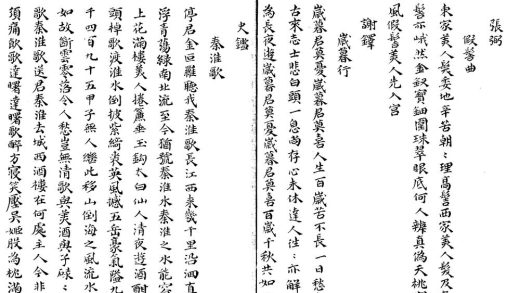 張弼
假髻曲
東家美人髮委地辛苦朝〻理高髻西家美人髮及
髻亦峨然金釵寶鈿圍珠翠眼底何人辨真偽夭桃
風假髻美人先入宮
謝鐸
歲暮行
歲暮君莫憂歲暮君莫喜人生百歲苦不長一日愁
古來志士悲白頭一息尚存心未休達人往〻亦解
為長夜遊歲暮君莫憂歲暮君莫喜百歲千秋共如
史鑑
秦淮歌
停君金叵羅聽我秦淮歌長江西來幾千里洄直
浮青蕩綠南北流至今猶號秦淮水秦淮之水能容
上花滿樓美人捲簾垂玉鉤太白仙人清夜遊酒酣
頭棹歌渡淮水倒披紫綺裘英風撼五岳豪氣隘九
千四百九十五甲子無人繼此移山倒海之風流水
如故斷雲零落令人愁豈無清歌與美酒與子碌〻
歌秦淮歌送君秦淮去城西酒樓在何處主人今非
須痛飲歌達曙達曙歌醉方寢笑壓吳姬股為枕滿